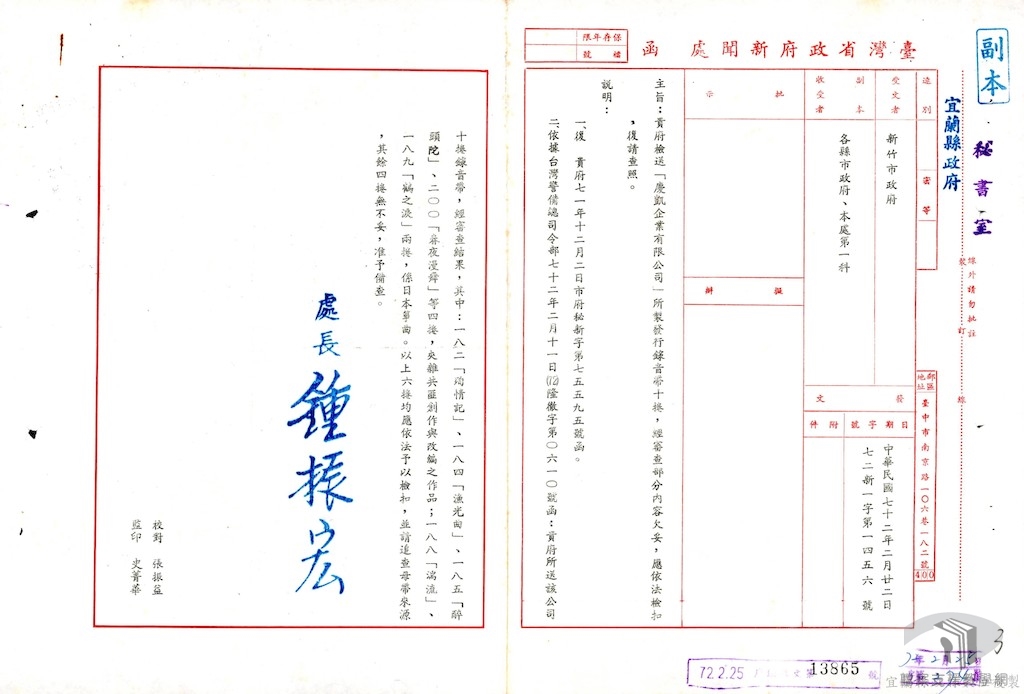 副本
秘書室
宜蘭縣政府
保存年限
檔號
臺灣省政府新聞處　函
線外請勿批註
裝　訂　線
速別
密等
郵區地址
臺中市南京路一〇六巷一八二號
400
受文者
新竹市政府
副本收受者
各縣市政府、本處第一科
發文
日期
字號
附件
中華民國七十二年二月廿二日
七二新一字第一四五六號
批示
擬辦
主旨：貴府檢送「慶凱企業有限公司」所製發行錄音帶十捲，經審查部分內容欠妥，應依法檢扣
，復請查照。
說明：
一、復　貴府七一年十二月二日市府秘新字第七五五九五號函。
二、依據台灣警備總司令部七十二年二月十一日(72)隆徹字第〇六一〇號函：貴府所送該公司
十捲錄音帶，經審查結果，其中：一八二「殉情記」、一八四「漁光曲」、一八五「醉
頭陀」、二〇〇「春夜漫舞」等四捲，夾雜共匪創作與改編之作品；一八八「湍流」、
一八九「鶴之浪」兩捲，係日本箏曲。以上六捲均應依法予以檢扣，並請追查母帶來源
，其餘四捲無不妥，准予備查。
處長　鍾振宏
校對　張振益
監印　史菁華
72.2.25
13865
號
3